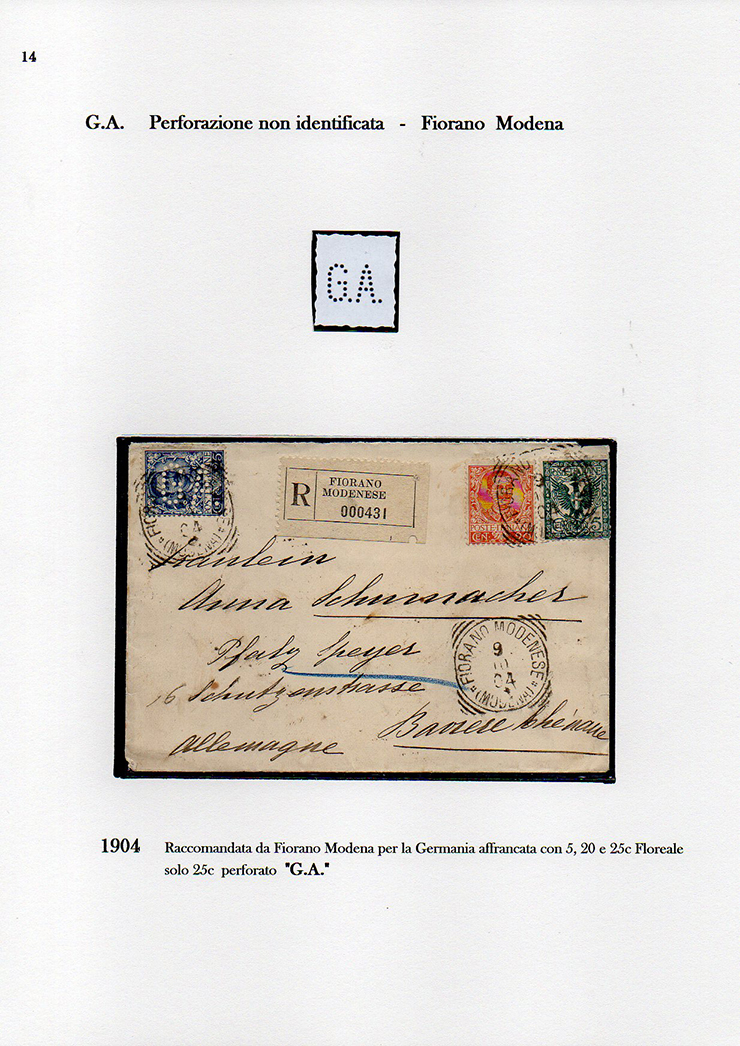 14
G.A. Perforazione non identificata - Fiorano Modena
G.A.
R
FIORANO
MODENESE
000431
Fräulein
Anna Schumacher
Pfalz Speyer
16 Schutzenstrasse
Bavière rhénane
Allemagne
FIORANO MODENESE
(MODENA)
9
04
1904 Raccomandata da Fiorano Modena per la Germania affrancata con 5, 20 e 25c Floreale
solo 25c perforato "G.A."